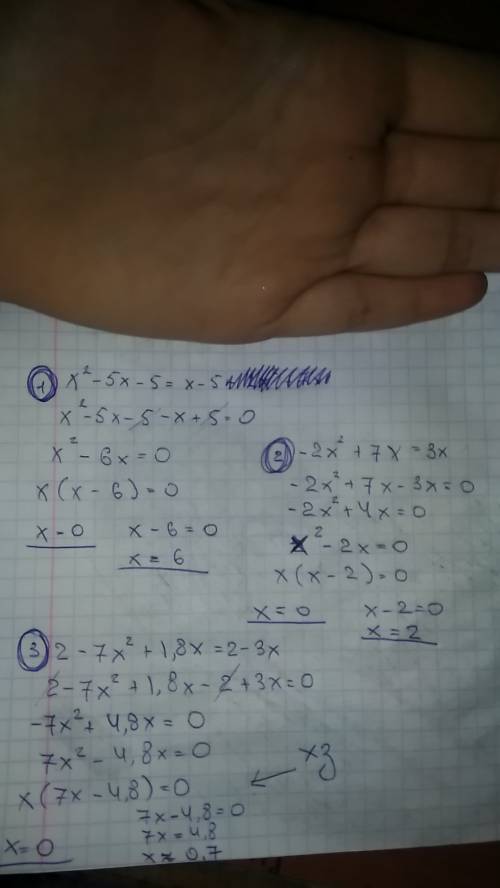 1 x² - 5x - 5 = x - 5
x² - 5x - 5 - x + 5 = 0
x² - 6x = 0
x(x - 6) = 0
x - 0 x - 6 = 0
x = 6
2 - 2x² + 7x = 3x
- 2x² + 7x - 3x = 0
- 2x² + 4x = 0
x² - 2x = 0
x(x - 2) = 0
x = 0 x - 2 = 0
x = 2
3 2 - 7x² + 1,8x = 2 - 3x
2 - 7x² + 1,8x - 2 + 3x = 0
-7x² + 4,8x = 0
7x² - 4,8x = 0
x(7x - 4,8) = 0 ← хз
7x - 4,8 = 0
7x = 4,8
x = 0 x ≈ 0,7